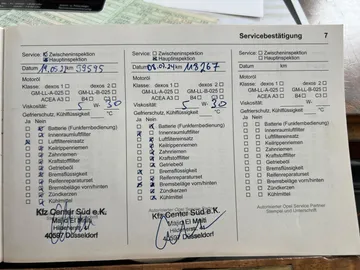 Servicebestätigung 7
Service: Zwischeninspektion
Hauptinspektion
Datum km 39595
Motoröl
dexos 1 dexos 2
GM-LL-A-025 GM-LL-B-025
ACEA A3 B4 C3
Viskosität: 5 W- 30
Gefrierschutz, Kühlflüssigkeit °C
Ja Nein
Batterie (Funkfernbedienung)
Innenraumluftfilter
Luftfiltereinsatz
Keilrippenriemen
Zahnriemen
Kraftstofffilter
Getriebeöl
Bremsflüssigkeit
Reifenreparaturset
Bremsbeläge vorn/hinten
Zündkerzen
Kühlmittel
Kfz Center Süd e.K.
Majid El Maiti
40597 Düsseldorf
Service: Zwischeninspektion
Hauptinspektion
Datum km 113267
Motoröl
dexos 1 dexos 2
GM-LL-A-025 GM-LL-B-025
ACEA A3 B4 C3
Viskosität: 5 W- 30
Gefrierschutz, Kühlflüssigkeit °C
Ja Nein
Batterie (Funkfernbedienung)
Innenraumluftfilter
Luftfiltereinsatz
Keilrippenriemen
Zahnriemen
Kraftstofffilter
Getriebeöl
Bremsflüssigkeit
Reifenreparaturset
Bremsbeläge vorn/hinten
Zündkerzen
Kühlmittel
Autorisierter Opel Service Partner
Kfz Center Süd e.K.
Majid El Maiti
Düsseldorf
Service: Zwischeninspektion
Hauptinspektion
Datum km
Motoröl
dexos 1 dexos 2
GM-LL-A-025 GM-LL-B-025
ACEA A3 B4 C3
Viskosität: W-
Gefrierschutz, Kühlflüssigkeit °C
Ja Nein
Batterie (Funkfernbedienung)
Innenraumluftfilter
Luftfiltereinsatz
Keilrippenriemen
Zahnriemen
Kraftstofffilter
Getriebeöl
Bremsflüssigkeit
Reifenreparaturset
Bremsbeläge vorn/hinten
Zündkerzen
Kühlmittel
Autorisierter Opel Service Partner
Stempel und Unterschrift